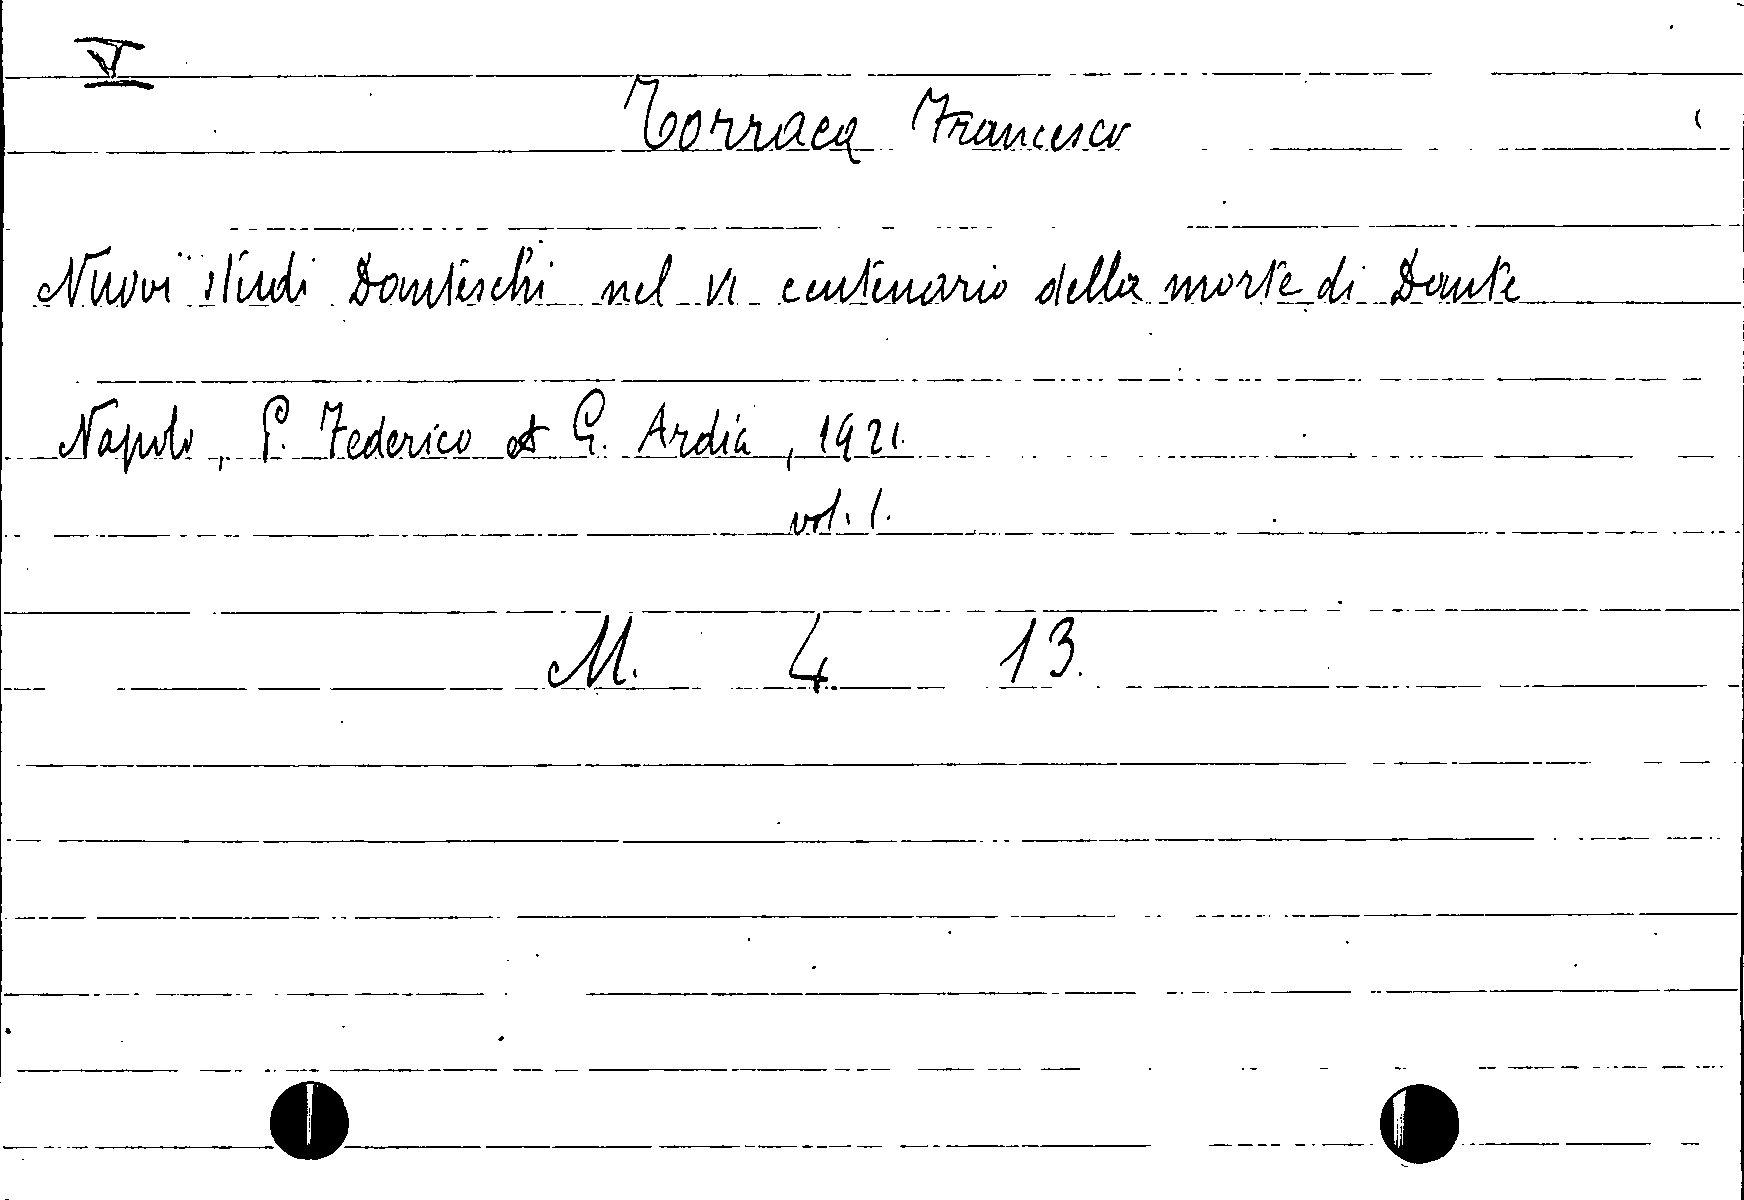 V
Torraca Francesco
Nuovi studi Danteschi nel VI centenario della morte di Dante
Napoli, P. Federico & G. Ardia, 1921.
vol. I.
M. 4. 13.